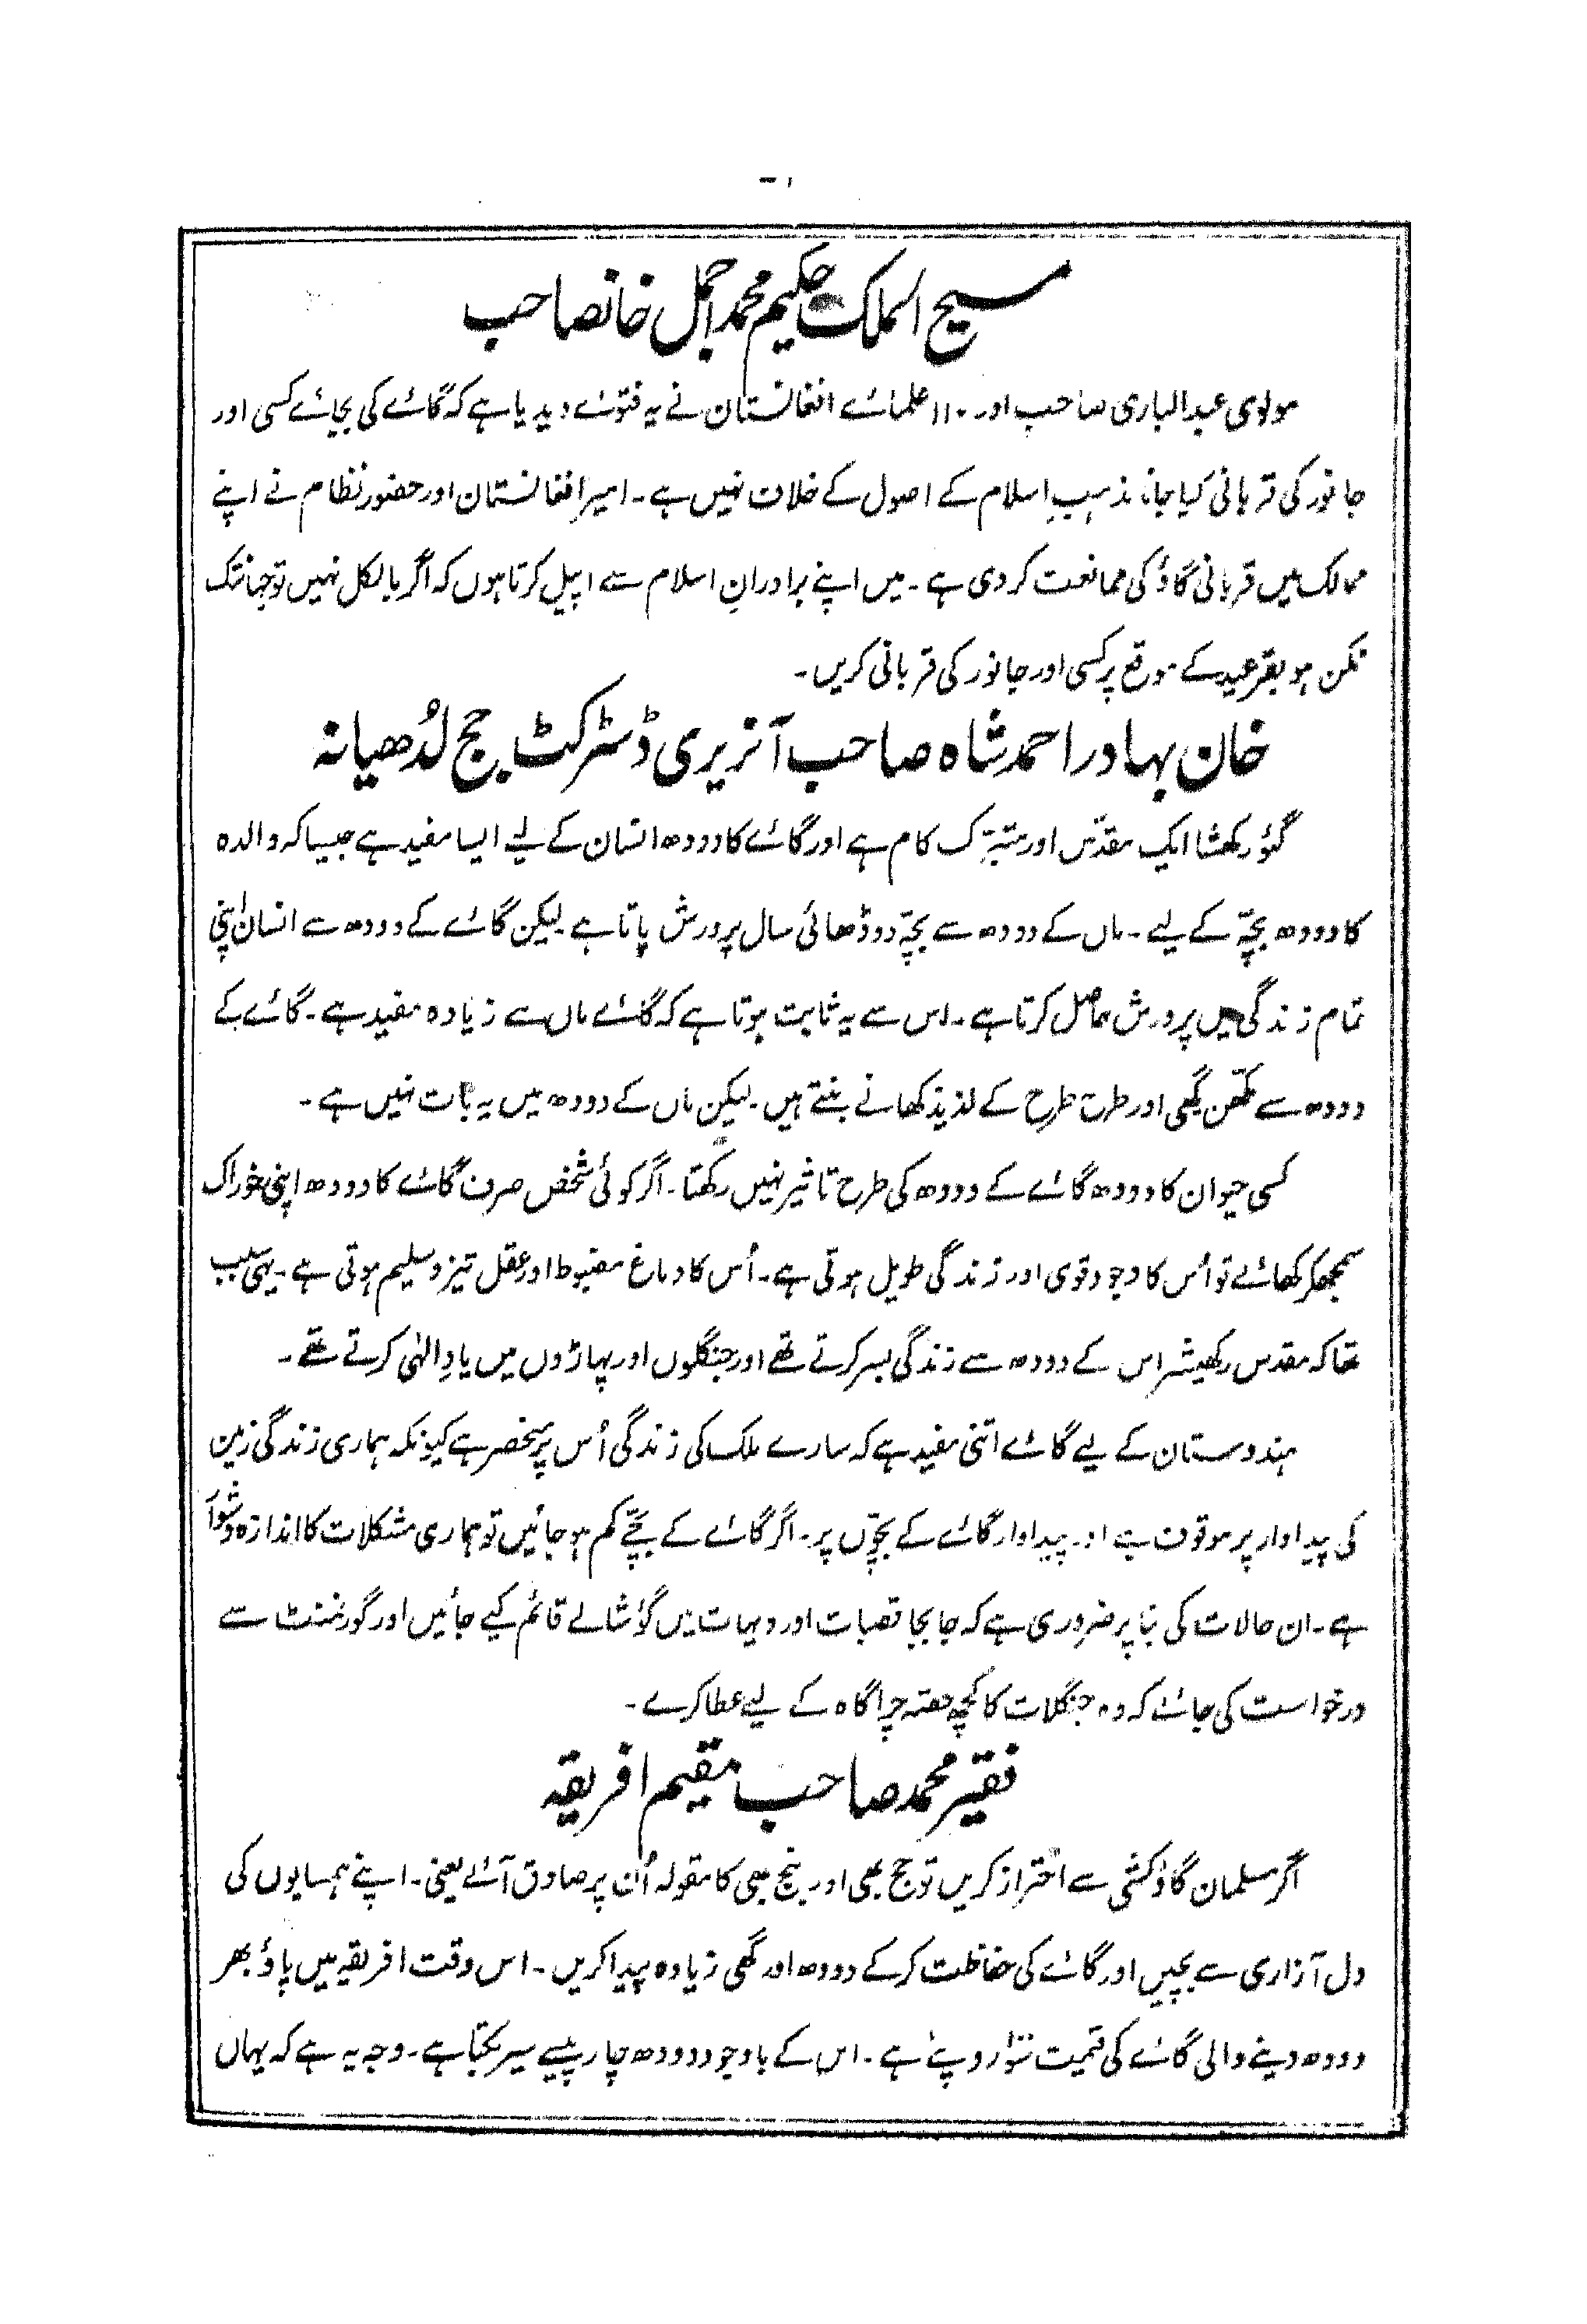 مسیح الملک حکیم محمد اجمل خانصاحب
مولوی عبدالباری صاحب اور ۱۱۰ علمائے افغانستان نے یہ فتوےٰ دیدیا ہے کہ گائے کی بجائے کسی اور
جانور کی قربانی کیا جانا مذہبِ اسلام کے اصول کے خلاف نہیں ہے۔ امیر افغانستان اور حضور نظام نے اپنے
ممالک میں قربانی گاؤ کی ممانعت کر دی ہے۔ میں اپنے برادرانِ اسلام سے اپیل کرتا ہوں کہ اگر بالکل نہیں تو جہانتک
ممکن ہو بقرعید کے موقع پر کسی اور جانور کی قربانی کریں۔
خان بہادر احمد شاہ صاحب آنریری ڈسٹرکٹ جج لُدھیانہ
گئو رکھشا ایک مقدّس اور متبرّک کام ہے اور گائے کا دودھ انسان کے لیے ایسا مفید ہے جیسا کہ والدہ
کا دودھ بچّہ کے لیے۔ ماں کے دودھ سے بچّہ دو ڈھائی سال پرورش پاتا ہے۔ لیکن گائے کے دودھ سے انسان اپنی
تمام زندگی میں پرورش حاصل کرتا ہے۔ اس سے یہ ثابت ہوتا ہے کہ گائے ماں سے زیادہ مفید ہے۔ گائے کے
دودھ سے مکھّن گھی اور طرح طرح کے لذیذ کھانے بنتے ہیں۔ لیکن ماں کے دودھ میں یہ بات نہیں ہے۔
کسی حیوان کا دودھ گائے کے دودھ کی طرح تاثیر نہیں رکھتا۔ اگر کوئی شخص صرف گائے کا دودھ اپنی خوراک
سمجھکر کھائے تو اُس کا وجود قوی اور زندگی طویل ہوتی ہے۔ اُس کا دماغ مضبوط اور عقل تیز و سلیم ہوتی ہے۔ یہی سبب
تھا کہ مقدس رکھیشر اس کے دودھ سے زندگی بسر کرتے تھے اور جنگلوں اور پہاڑوں میں یادِ الٰہی کرتے تھے۔
ہندوستان کے لیے گائے اتنی مفید ہے کہ سارے ملک کی زندگی اُس پر منحصر ہے کیونکہ ہماری زندگی زمین
کی پیداوار پر موقوف ہے اور پیداوار گائے کے بچّوں پر۔ اگر گائے کے بچّے کم ہو جائیں تو ہماری مشکلات کا اندازہ دشوار
ہے۔ ان حالات کی بنا پر ضروری ہے کہ جا بجا قصبات اور دیہات میں گؤشالے قائم کیے جائیں اور گورنمنٹ سے
درخواست کی جائے کہ وہ جنگلات کا کچھ حصّہ چراگاہ کے لیے عطا کرے۔
فقیر محمد صاحب مقیم افریقہ
اگر مسلمان گاؤکشی سے احتراز کریں تو حج بھی اور بنج بھی کا مقولہ اُن پر صادق آئے یعنی۔ اپنے ہمسایوں کی
دل آزاری سے بچیں اور گائے کی حفاظت کر کے دودھ اور گھی زیادہ پیدا کریں۔ اس وقت افریقہ میں پاؤ بھر
دودھ دینے والی گائے کی قیمت سَو روپے ہے۔ اس کے باوجود دودھ چار پیسے سیر بکتا ہے۔ وجہ یہ ہے کہ یہاں